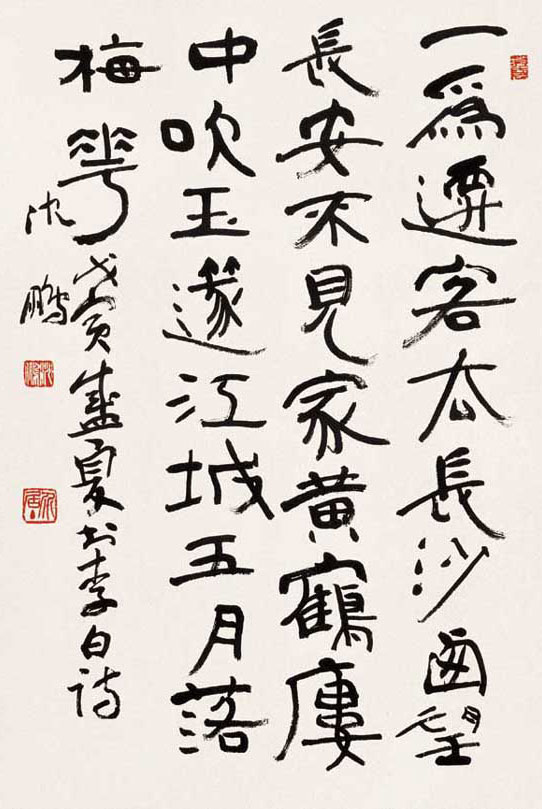 一爲遷客去長沙西望
長安不見家黃鶴廔
中吹玉篴江城五月落
梅華 戊寅盛夏书李白詩
沈鵬